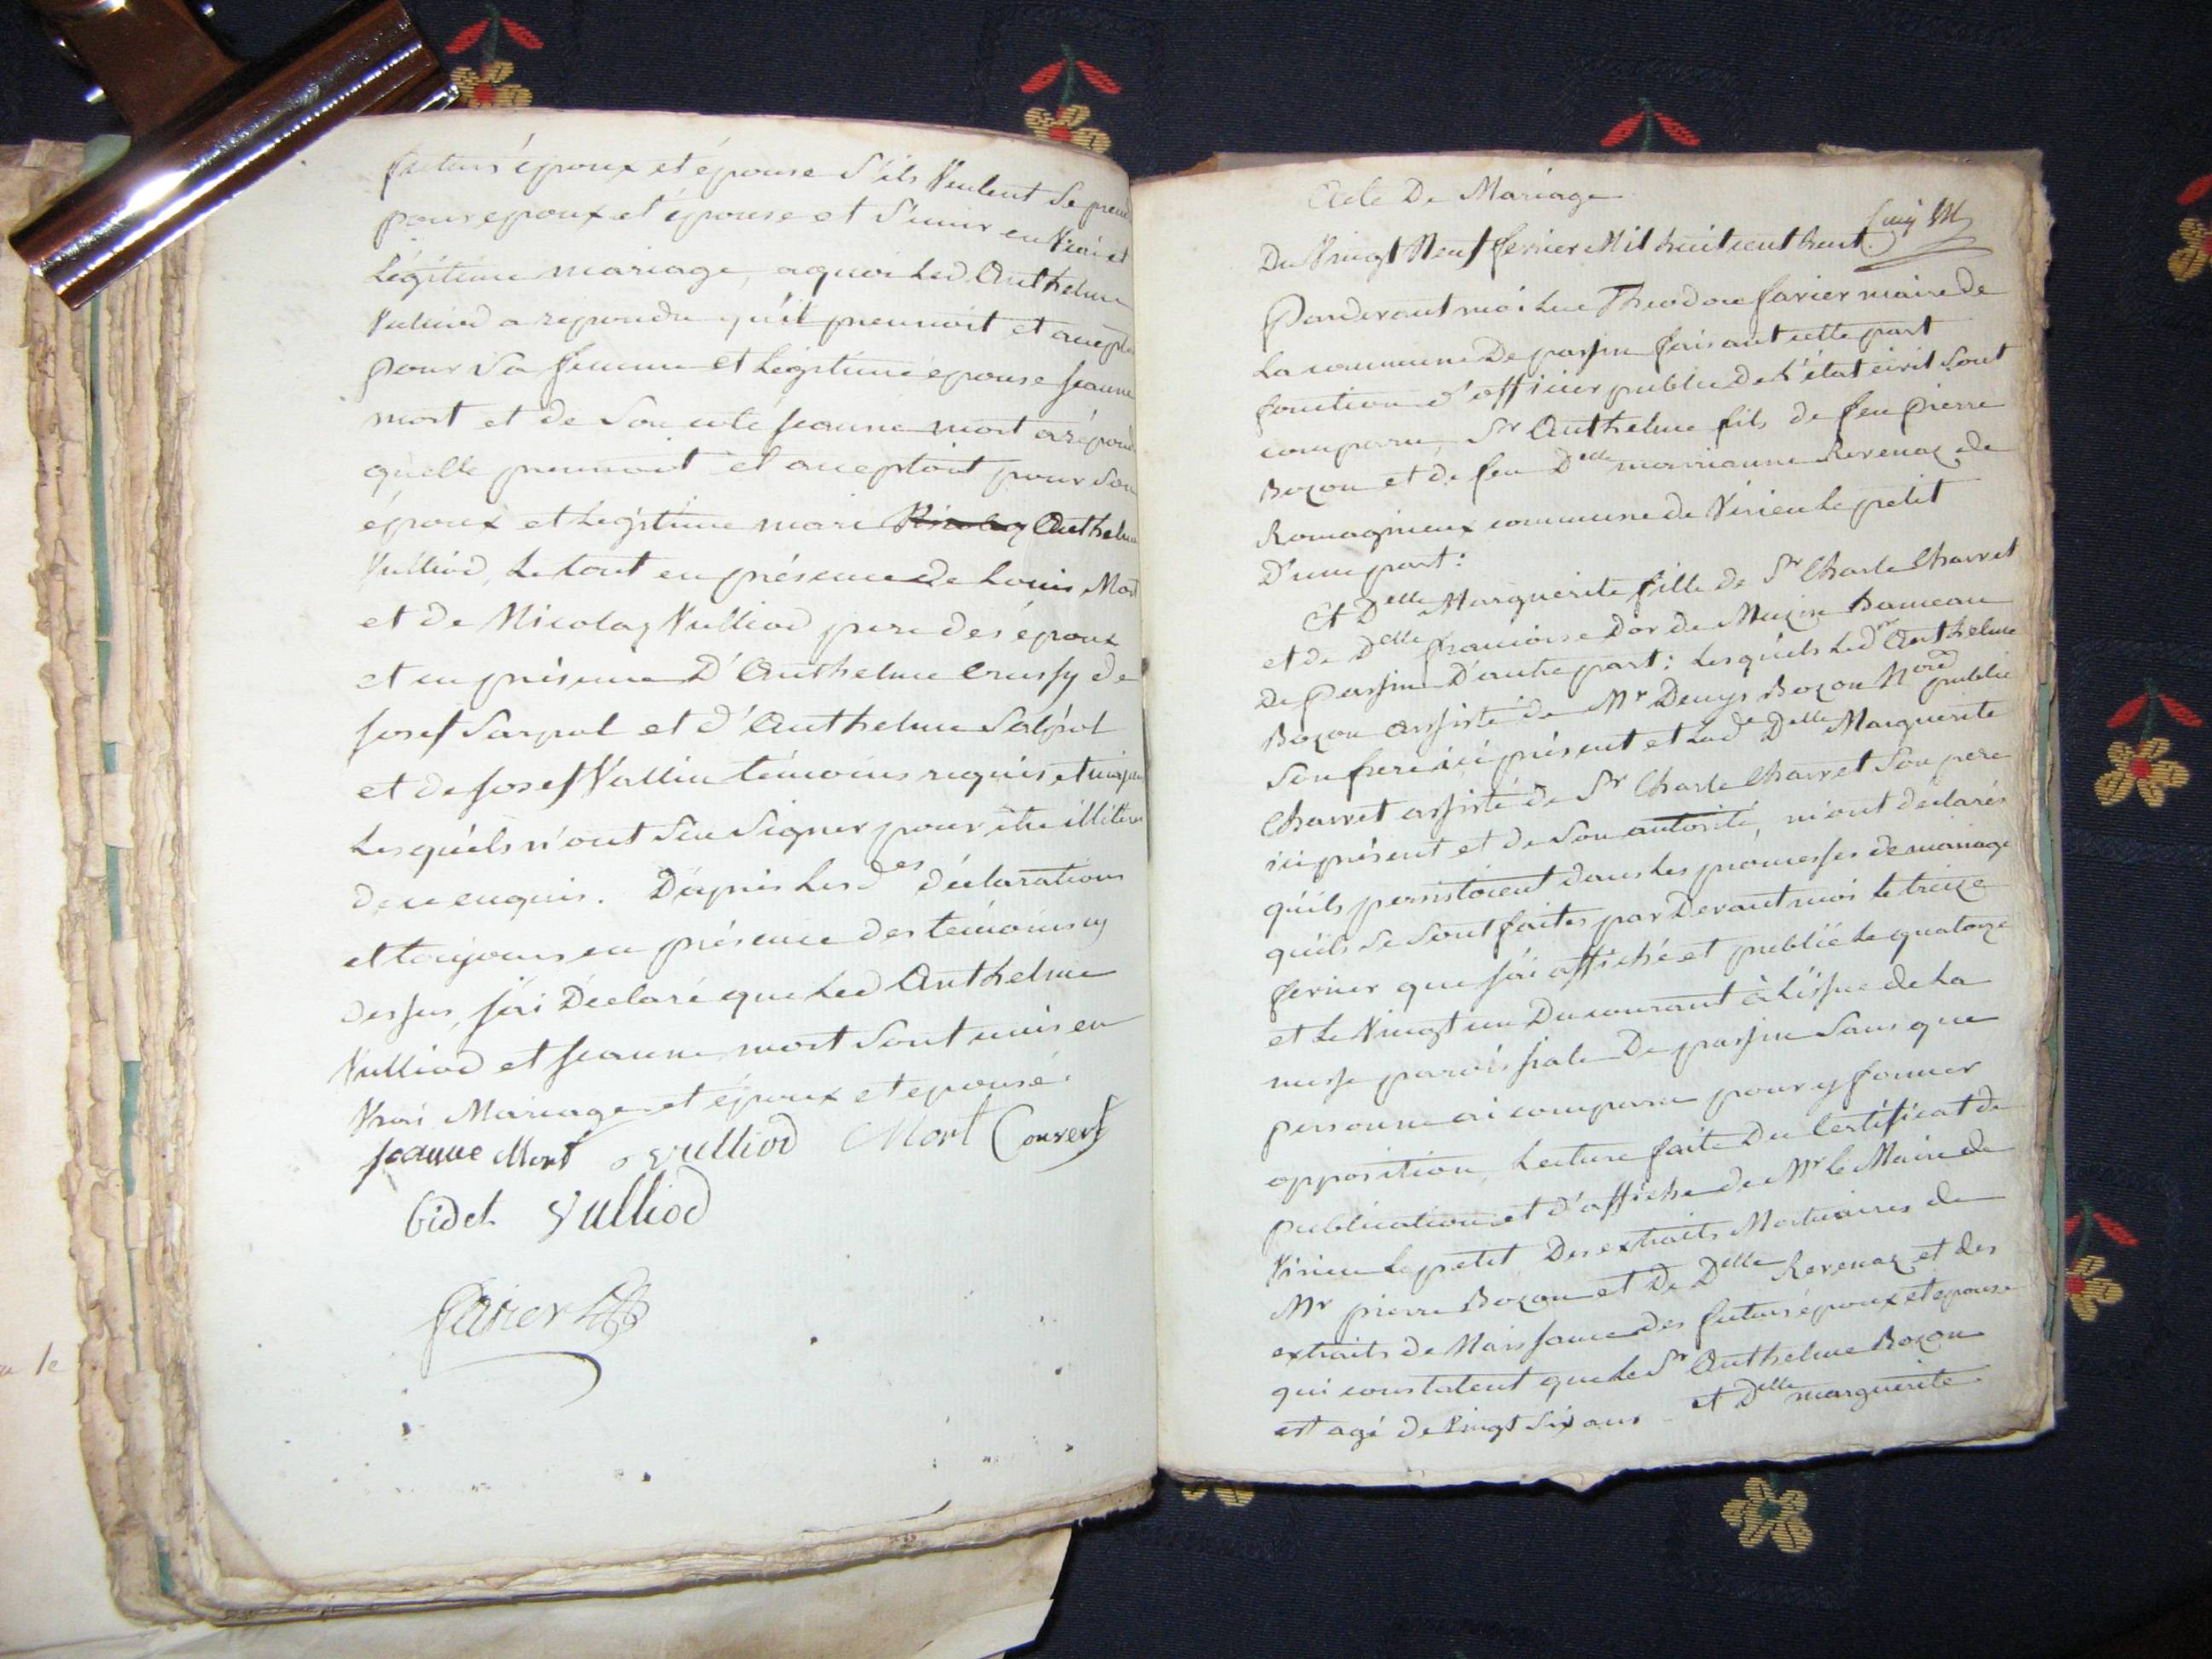 futurs époux et épouse s'ils veulent se pren
pour epoux et épouse et s'unir en vrai et
Légitime mariage, a quoi Led. Anthelme
Vulliod a repondu qu'il prennoit et accept
pour sa femme et Légitime épouse jeanne
mort et de son coté jeanne mort a répond
quelle prennoit et acceptoit pour son
époux et Légitime mari Anthelme
Vulliod, Le tout en présence de Louis Mort
et de Nicolas Vulliod pere des époux
et en présence D'Anthelme de
josef et d'Anthelme
et de josef Vallin témoins requis et
Lesquels n'ont seu signer pour etre illiter
de ce enquis. D'apris Lesdes déclarations
et toujours en présence des témoins cy
dessus, j'ai Déclaré que Led Anthelme
Vulliod et jeanne mort sont unis en
Vrai Mariage et époux et epouse.
jeanne Mort vulliod Mort Convert
bidet Vulliod
favier
u le
Acte De Mariage
Du Vingt Neuf fevrier Mil huit cent huit.
Pardevant moi Luc Théodore favier maire de
La commune De passin faisant cette part
fonction d'officier public de L'état civil sont
comparu, Sr Anthelme fils de feu Pierre
Bozon et de feu Delle marianne Revenaz de
Romagnieux commune de Virieu Le petit
D'une part:
et Delle Marguerite fille de Sr Charle Charvet
et de Delle francoise Dor de Muzin hameau
De Passin D'autre part: Lesquels Led Sr Anthelme
Bozon assisté de Mr Denys Bozon public
Son frere ici présent et Lade Delle Marguerite
Charvet assisté de Sr Charle Charvet Son pere
ici présent et de Son autorité, m'ont déclarés
qu'ils persistoient dans Les promesses de mariage
qu'ils se sont faites par Devant moi Le treize
fevrier que j'ai affiché et publié Le quatorze
et Le Vingt un Du courant à L'issue de La
messe paroissiale De passin Sans que
personne ai comparu pour y former
opposition, Lecture faite Du Certificat de
publication et d'affiche de Mr Le Maire de
Virieu Le petit Des extraits Mortuaires de
Mr pierre Bozon et De Delle Revenaz et des
extraits de Naissance des futurs époux et epouse
qui constatent que Le Sr Anthelme Bozon
est agé de Vingt Six ans et Delle marguerite